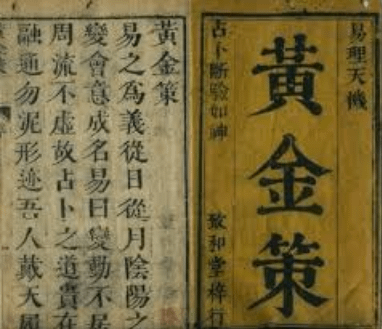 易理天機
黃金策
占卜断验如神
致和堂梓行
黃金策
易之為義從日從月陰陽之
變會意成名易曰變動不居
周流不虛故占卜之道貴在
融通勿泥形迹吾人戴天履